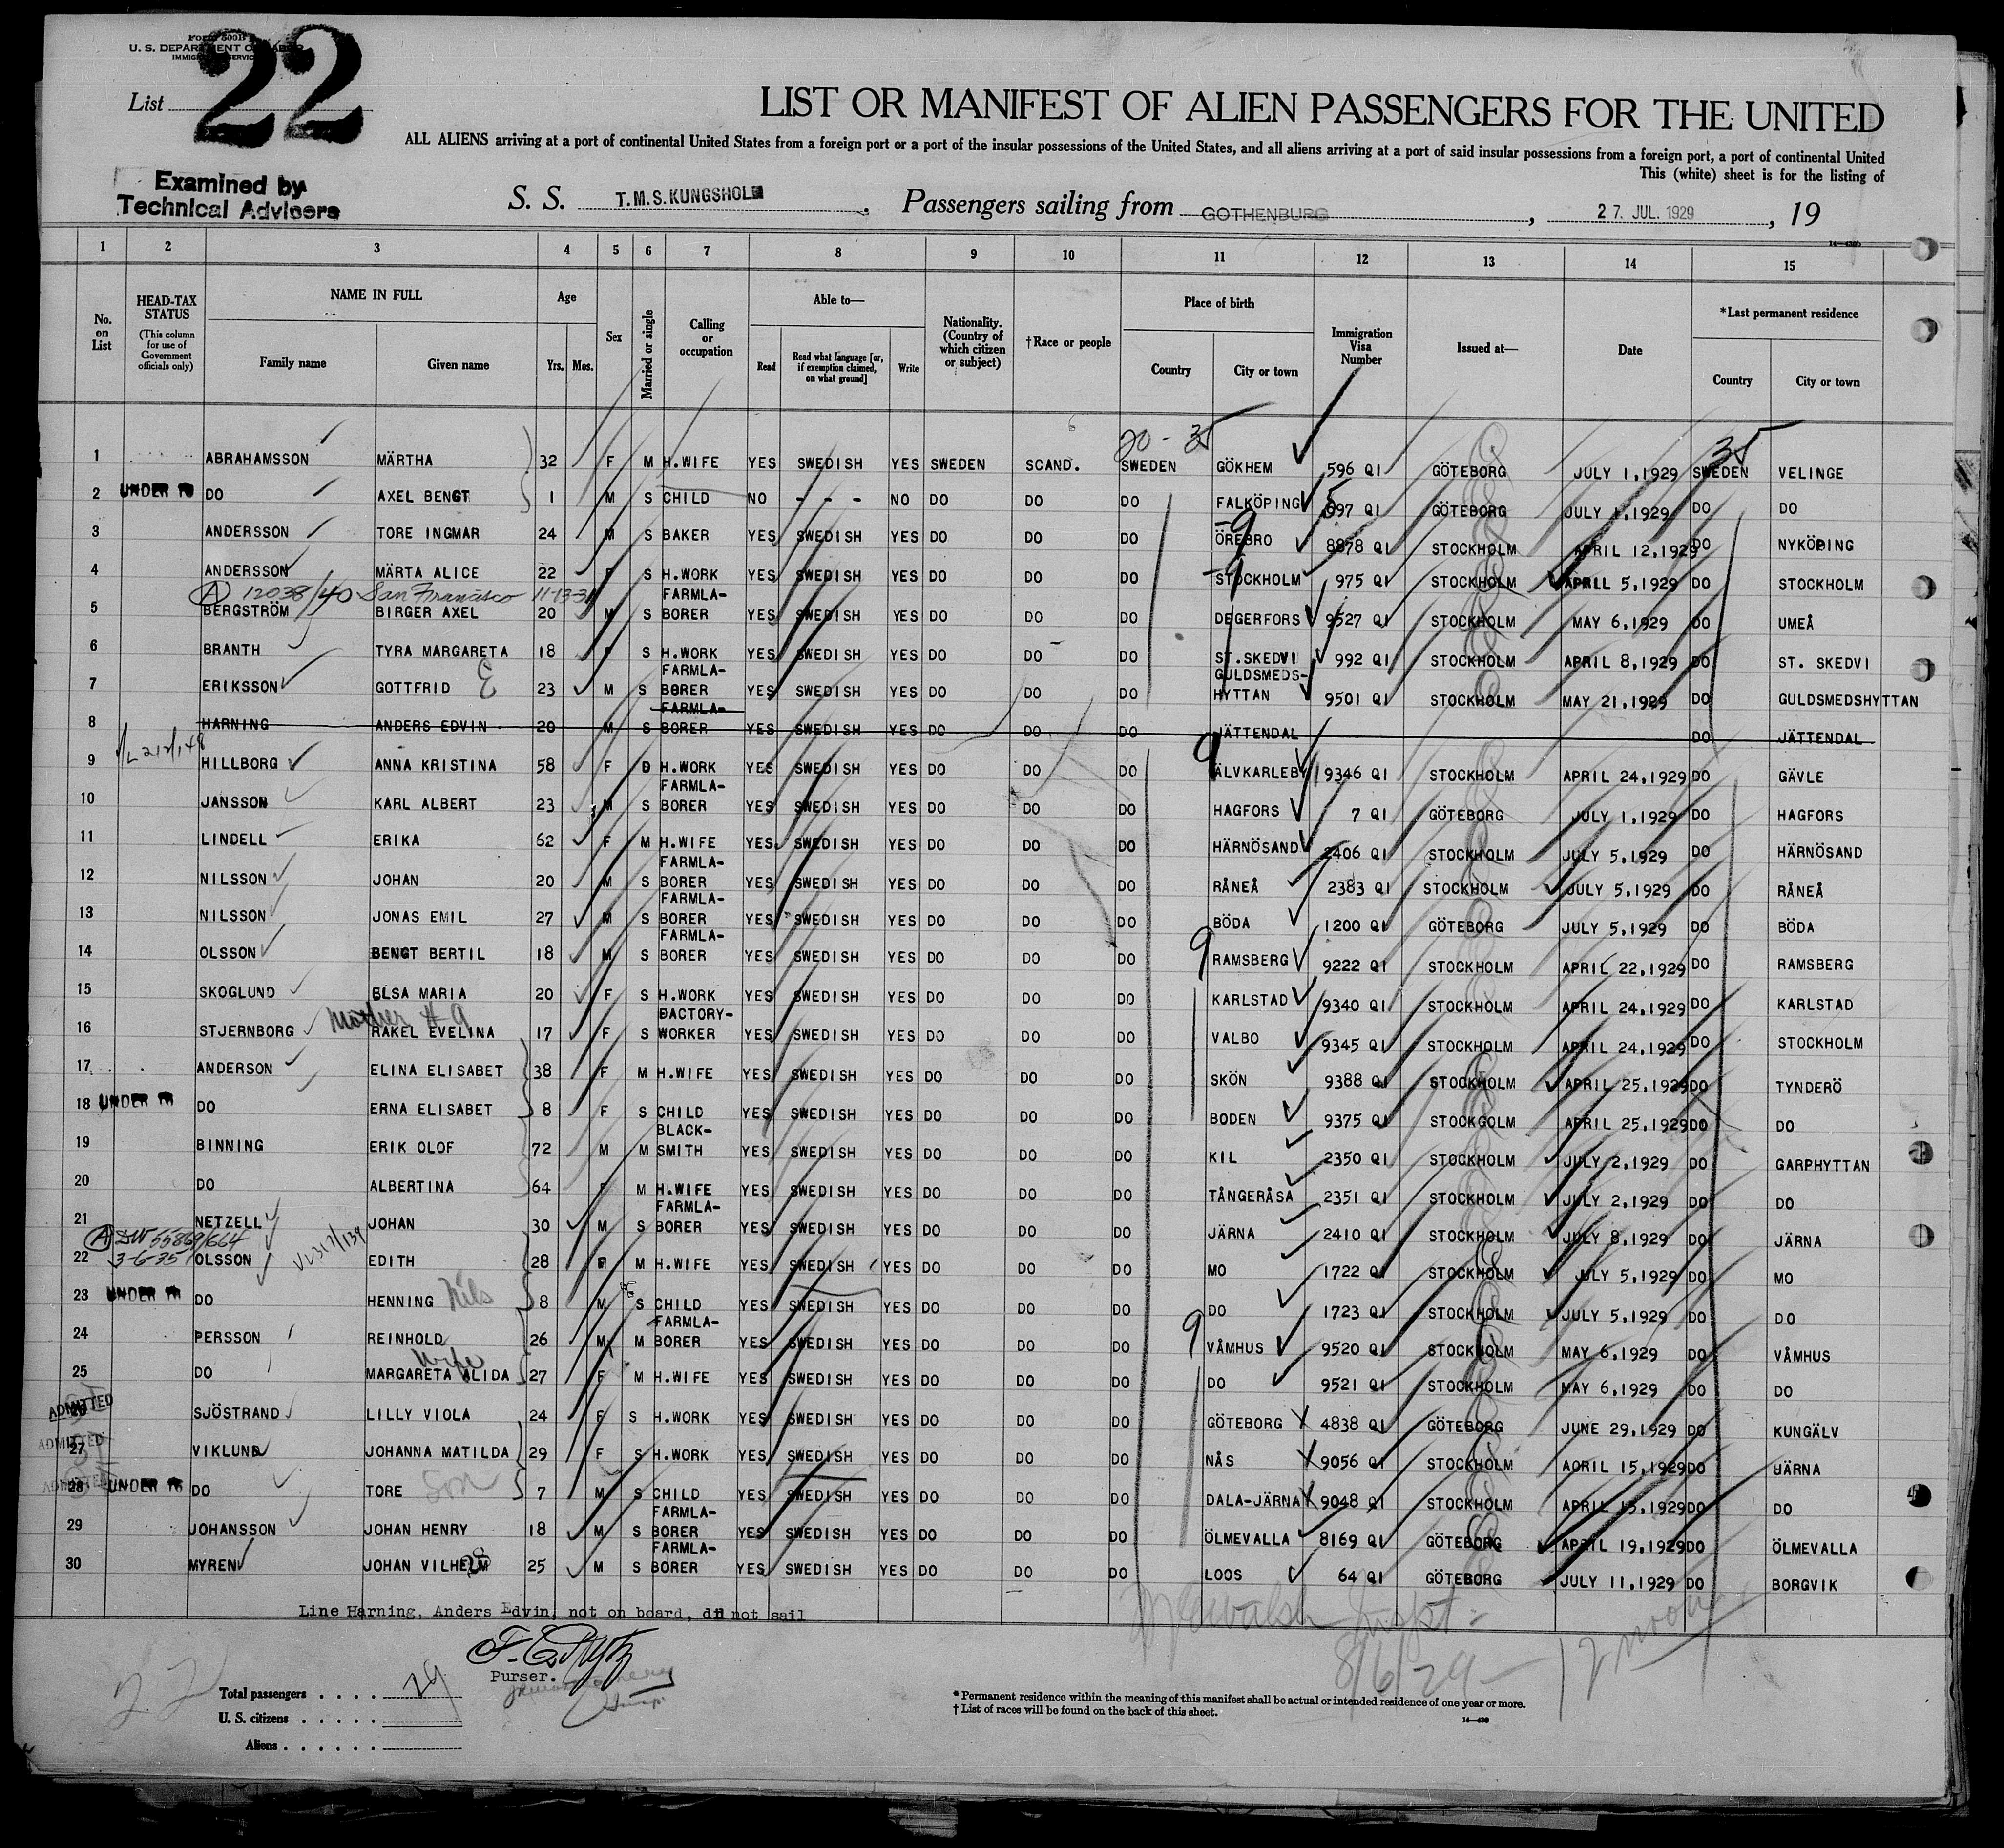 FORM 500B
U. S. DEPARTMENT OF LABOR
IMMIGRATION SERVICE
List 22
LIST OR MANIFEST OF ALIEN PASSENGERS FOR THE UNITED
ALL ALIENS arriving at a port of continental United States from a foreign port or a port of the insular possessions of the United States, and all aliens arriving at a port of said insular possessions from a foreign port, a port of continental United
This (white) sheet is for the listing of
Examined by
Technical Advisers
S. S. T.M.S. KUNGSHOLM. Passengers sailing from GOTHENBURG, 27. JUL. 1929, 19
14—430b
1 2 3 4 5 6 7 8 9 10 11 12 13 14 15
No. on List
HEAD-TAX STATUS (This column for use of Government officials only)
NAME IN FULL
Family name Given name
Age
Yrs. Mos.
Sex
Married or single
Calling or occupation
Able to—
Read Read what language [or, if exemption claimed, on what ground] Write
Nationality. (Country of which citizen or subject)
†Race or people
Place of birth
Country City or town
Immigration Visa Number
Issued at—
Date
*Last permanent residence
Country City or town
20 - 35 35
1 ABRAHAMSSON MÄRTHA 32 F M H.WIFE YES SWEDISH YES SWEDEN SCAND. SWEDEN GÖKHEM 596 QI GÖTEBORG JULY 1,1929 SWEDEN VELINGE
2 UNDER 16 DO AXEL BENGT 1 M S CHILD NO - - - NO DO DO DO FALKÖPING 597 QI GÖTEBORG JULY 1,1929 DO DO
3 ANDERSSON TORE INGMAR 24 M S BAKER YES SWEDISH YES DO DO DO ÖREBRO 8878 QI STOCKHOLM APRIL 12,1929 DO NYKÖPING
4 ANDERSSON MÄRTA ALICE 22 F S H.WORK YES SWEDISH YES DO DO DO STOCKHOLM 975 QI STOCKHOLM APRIL 5,1929 DO STOCKHOLM
A 12038/40 San Francisco 11-13-31
5 BERGSTRÖM BIRGER AXEL 20 M S FARMLA-BORER YES SWEDISH YES DO DO DO DEGERFORS 9527 QI STOCKHOLM MAY 6,1929 DO UMEÅ
6 BRANTH TYRA MARGARETA 18 F S H.WORK YES SWEDISH YES DO DO DO ST.SKEDVI 992 QI STOCKHOLM APRIL 8,1929 DO ST. SKEDVI
7 ERIKSSON GOTTFRID E 23 M S FARMLA-BORER YES SWEDISH YES DO DO DO GULDSMEDS-HYTTAN 9501 QI STOCKHOLM MAY 21,1929 DO GULDSMEDSHYTTAN
8 HARNING ANDERS EDVIN 20 M S FARMLA-BORER YES SWEDISH YES DO DO DO JÄTTENDAL DO JÄTTENDAL
9 HILLBORG ANNA KRISTINA 58 F D H.WORK YES SWEDISH YES DO DO DO ÄLVKARLEBY 9346 QI STOCKHOLM APRIL 24,1929 DO GÄVLE
10 JANSSON KARL ALBERT 23 M S FARMLA-BORER YES SWEDISH YES DO DO DO HAGFORS 7 QI GÖTEBORG JULY 1,1929 DO HAGFORS
11 LINDELL ERIKA 62 F M H.WIFE YES SWEDISH YES DO DO DO HÄRNÖSAND 2406 QI STOCKHOLM JULY 5,1929 DO HÄRNÖSAND
12 NILSSON JOHAN 20 M S FARMLA-BORER YES SWEDISH YES DO DO DO RÅNEÅ 2383 QI STOCKHOLM JULY 5,1929 DO RÅNEÅ
13 NILSSON JONAS EMIL 27 M S FARMLA-BORER YES SWEDISH YES DO DO DO BÖDA 1200 QI GÖTEBORG JULY 5,1929 DO BÖDA
14 OLSSON BENGT BERTIL 18 M S FARMLA-BORER YES SWEDISH YES DO DO DO RAMSBERG 9222 QI STOCKHOLM APRIL 22,1929 DO RAMSBERG
15 SKOGLUND ELSA MARIA 20 F S H.WORK YES SWEDISH YES DO DO DO KARLSTAD 9340 QI STOCKHOLM APRIL 24,1929 DO KARLSTAD
Mother # 9
16 STJERNBORG RAKEL EVELINA 17 F S FACTORY-WORKER YES SWEDISH YES DO DO DO VALBO 9345 QI STOCKHOLM APRIL 24,1929 DO STOCKHOLM
17 ANDERSON ELINA ELISABET 38 F M H.WIFE YES SWEDISH YES DO DO DO SKÖN 9388 QI STOCKHOLM APRIL 25,1929 DO TYNDERÖ
18 UNDER 16 DO ERNA ELISABET 8 F S CHILD YES SWEDISH YES DO DO DO BODEN 9375 QI STOCKGOLM APRIL 25,1929 DO DO
19 BINNING ERIK OLOF 72 M M BLACK-SMITH YES SWEDISH YES DO DO DO KIL 2350 QI STOCKHOLM JULY 2,1929 DO GARPHYTTAN
20 DO ALBERTINA 64 F M H.WIFE YES SWEDISH YES DO DO DO TÅNGERÅSA 2351 QI STOCKHOLM JULY 2,1929 DO DO
21 NETZELL JOHAN 30 M S FARMLA-BORER YES SWEDISH YES DO DO DO JÄRNA 2410 QI STOCKHOLM JULY 8,1929 DO JÄRNA
A 55869/664
3-6-35
22 OLSSON EDITH 28 F M H.WIFE YES SWEDISH YES DO DO DO MO 1722 QI STOCKHOLM JULY 5,1929 DO MO
23 UNDER 16 DO HENNING Nils 8 M S CHILD YES SWEDISH YES DO DO DO DO 1723 QI STOCKHOLM JULY 5,1929 DO DO
24 PERSSON REINHOLD 26 M M FARMLA-BORER YES SWEDISH YES DO DO DO VÅMHUS 9520 QI STOCKHOLM MAY 6,1929 DO VÅMHUS
Wife
25 DO MARGARETA ALIDA 27 F M H.WIFE YES SWEDISH YES DO DO DO DO 9521 QI STOCKHOLM MAY 6,1929 DO DO
ADMITTED 26 SJÖSTRAND LILLY VIOLA 24 F S H.WORK YES SWEDISH YES DO DO DO GÖTEBORG 4838 QI GÖTEBORG JUNE 29,1929 DO KUNGÄLV
ADMITTED 27 VIKLUND JOHANNA MATILDA 29 F S H.WORK YES SWEDISH YES DO DO DO NÅS 9056 QI STOCKHOLM AORIL 15,1929 DO JÄRNA
ADMITTED 28 UNDER 16 DO TORE Son 7 M S CHILD YES SWEDISH YES DO DO DO DALA-JÄRNA 9048 QI STOCKHOLM APRIL 15,1929 DO DO
29 JOHANSSON JOHAN HENRY 18 M S FARMLA-BORER YES SWEDISH YES DO DO DO ÖLMEVALLA 8169 QI GÖTEBORG APRIL 19,1929 DO ÖLMEVALLA
30 MYREN JOHAN VILHELM 25 M S FARMLA-BORER YES SWEDISH YES DO DO DO LOOS 64 QI GÖTEBORG JULY 11,1929 DO BORGVIK
Line Harning, Anders Edvin, not on board, did not sail
Purser.
8/6/29 - 12 noon
22
Total passengers . . . . 29
U. S. citizens . . . . .
Aliens . . . . . .
* Permanent residence within the meaning of this manifest shall be actual or intended residence of one year or more.
† List of races will be found on the back of this sheet.
14—430